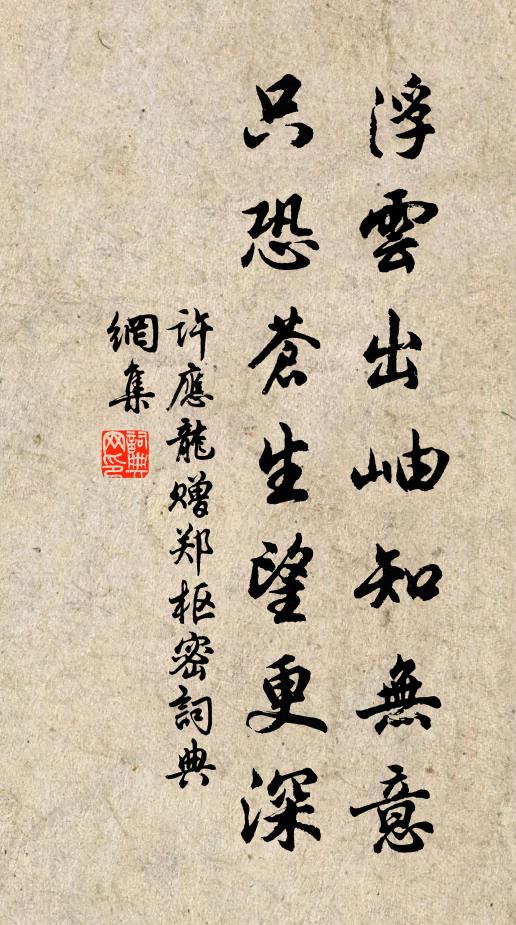 浮雲出岫知無意
只恐蒼生望更深
许應龍赠郑枢密詞典
網集
詞典
网印